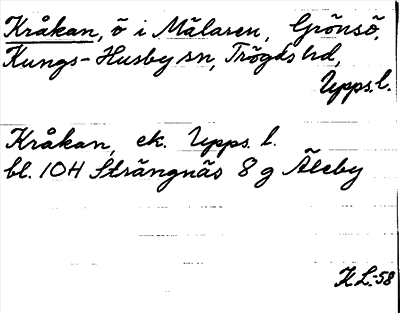 Kråkan, ö i Mälaren, Grönsö,
Kungs-Husby sn, Trögds hd,
Upps. l.
Kråkan, ek. Upps. l.
bl. 10H Strängnäs 8 g Äleby
H L.-58